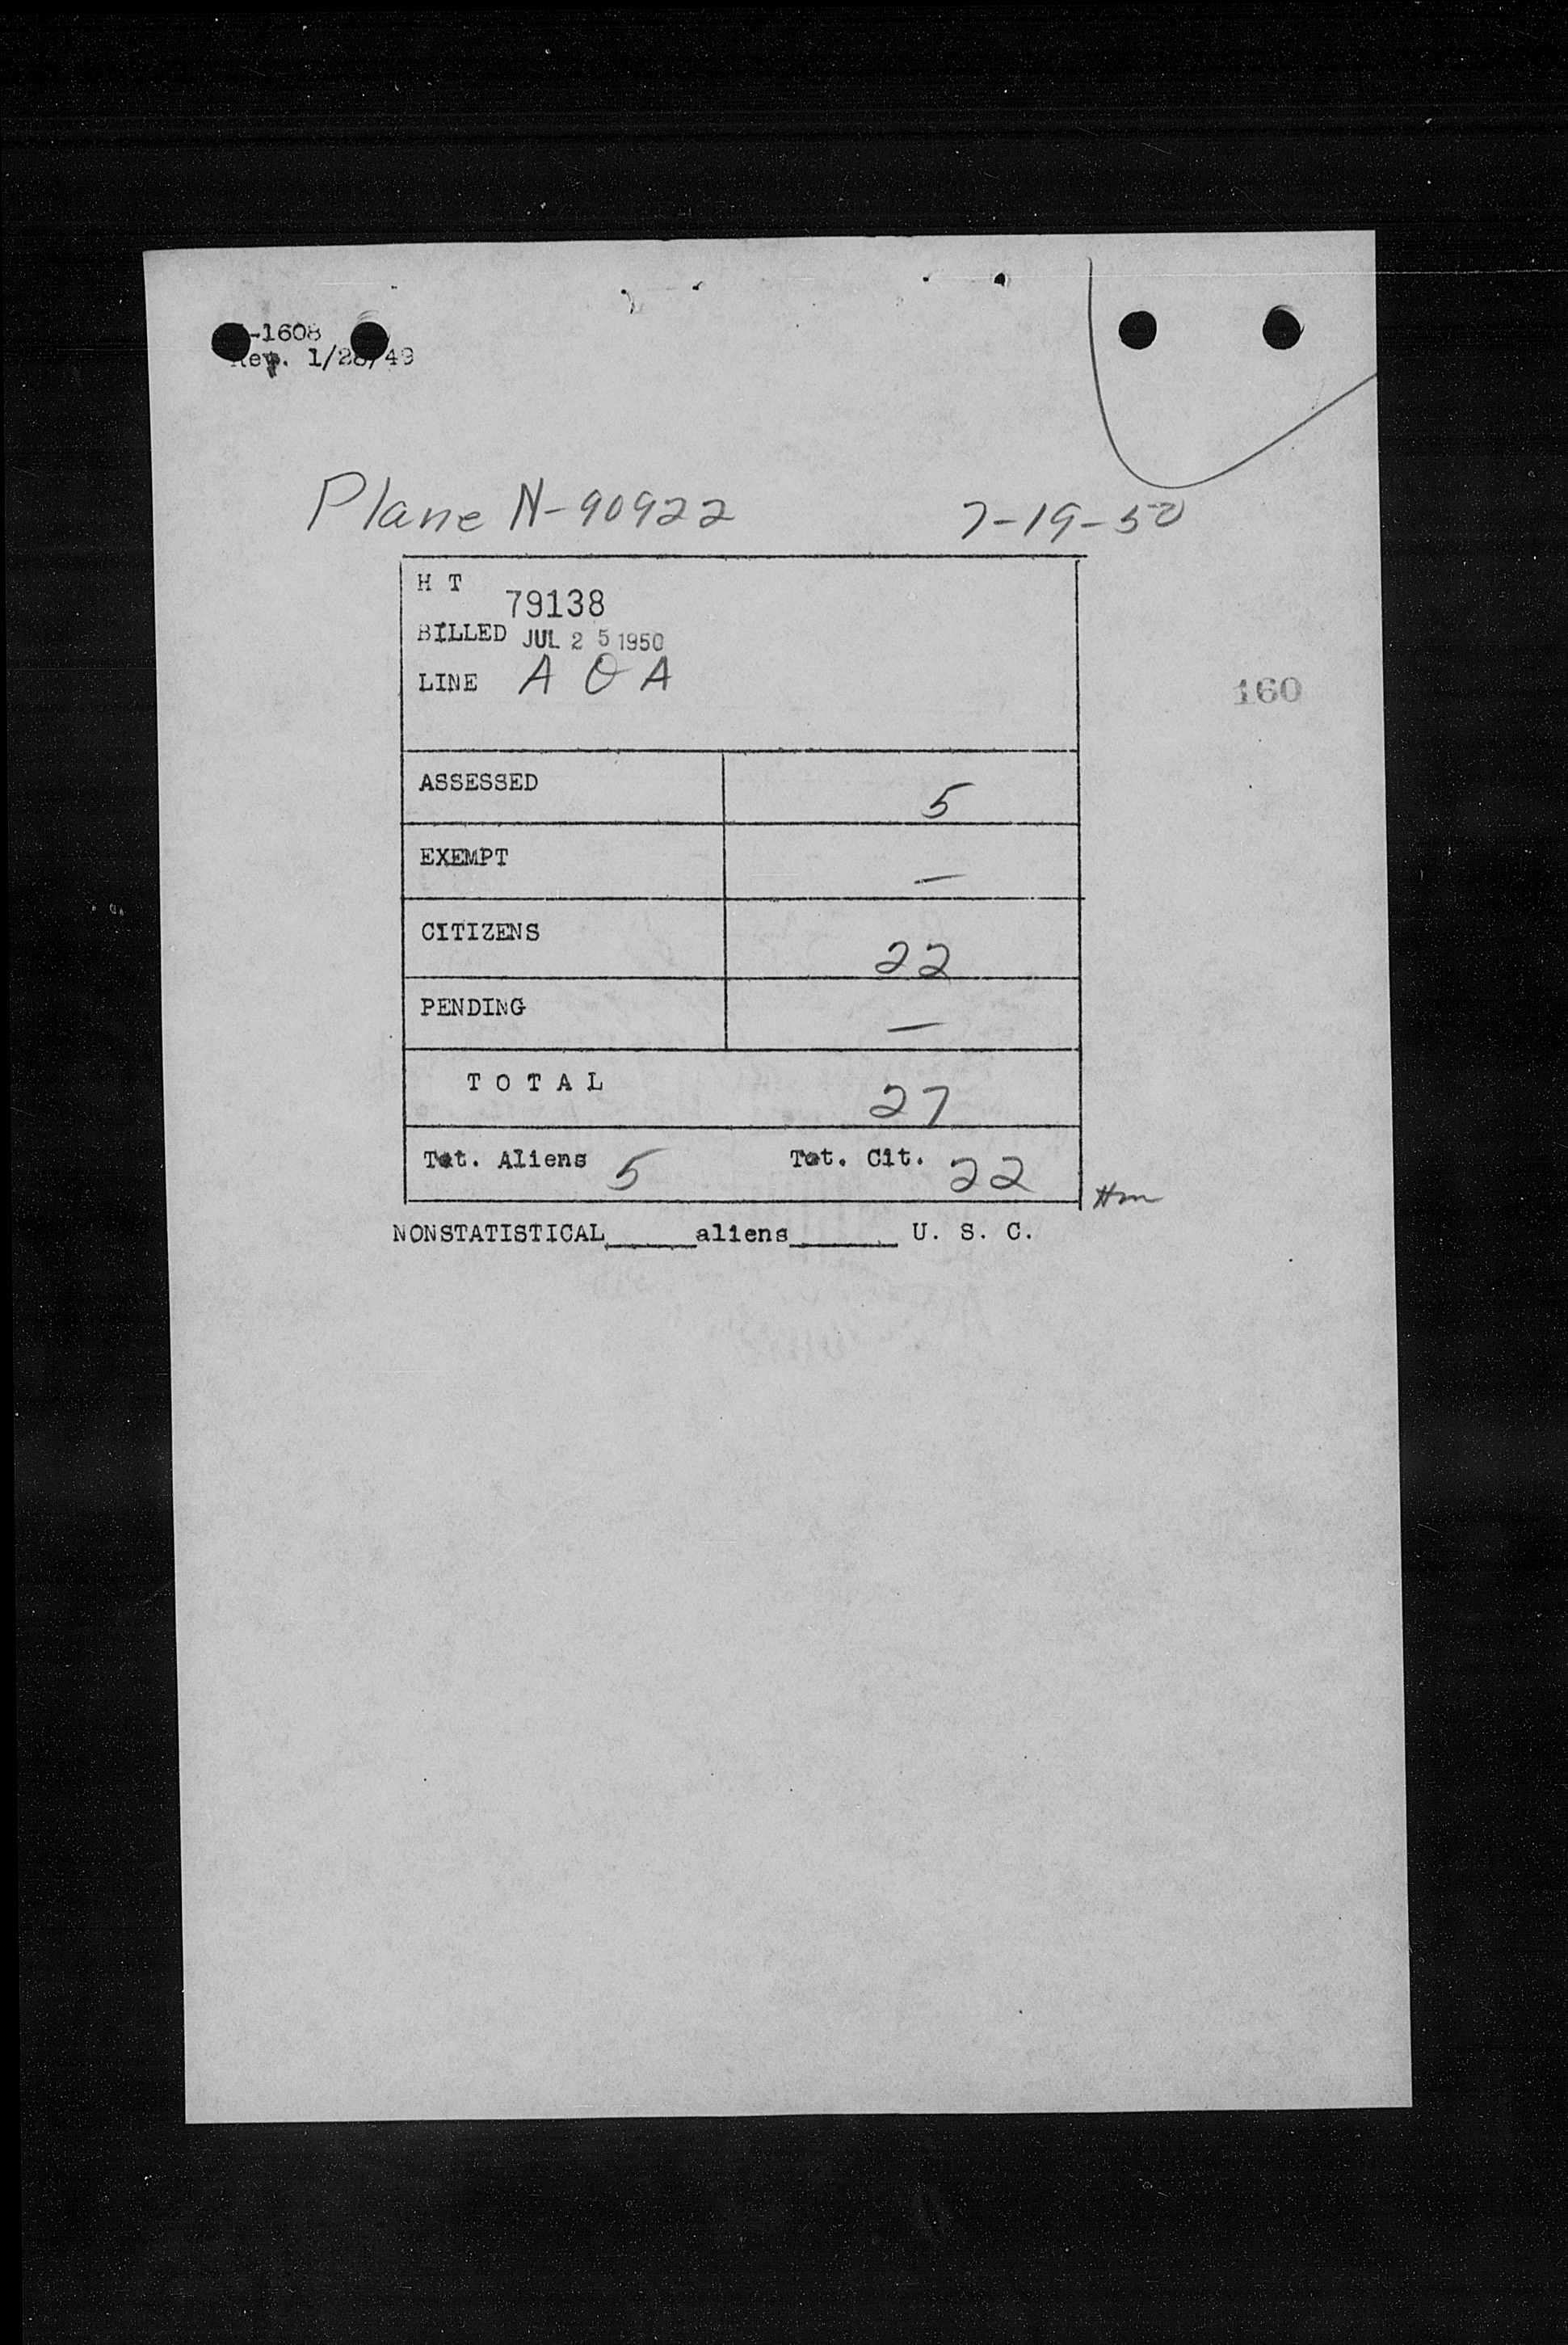 -1608
Rev. 1/28/49
Plane N-90922 7-19-50
H T 79138
BILLED JUL 25 1950
LINE A O A
160
ASSESSED 5
EXEMPT —
CITIZENS 22
PENDING —
T O T A L 27
Tot. Aliens 5 Tot. Cit. 22
NONSTATISTICAL_____aliens______ U. S. C.